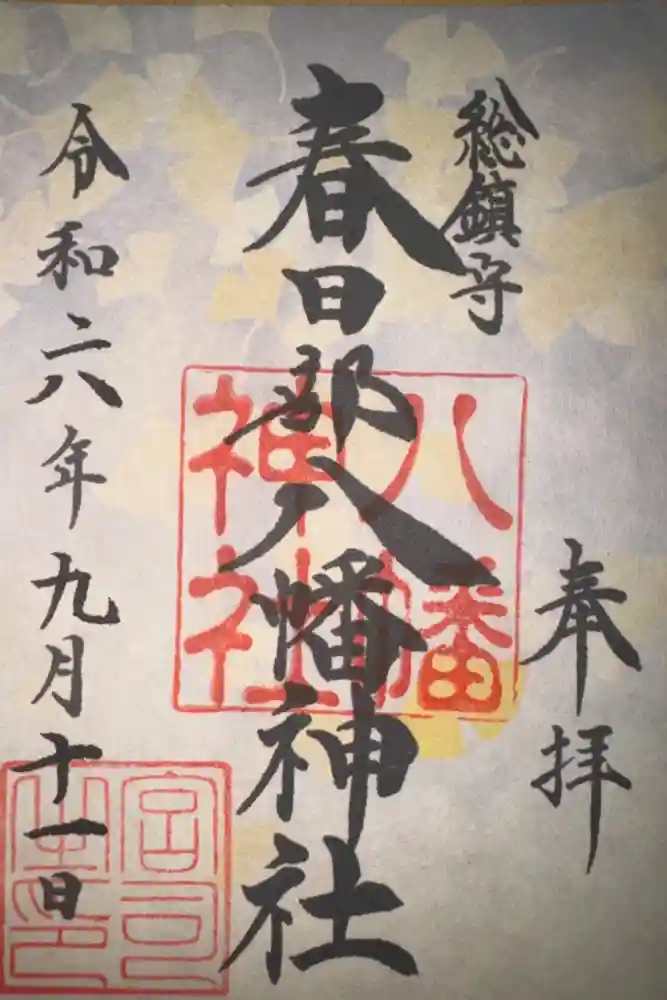 奉拝
総鎮守
春日部八幡神社
令和六年九月十一日
八幡
神社
宮司
之印